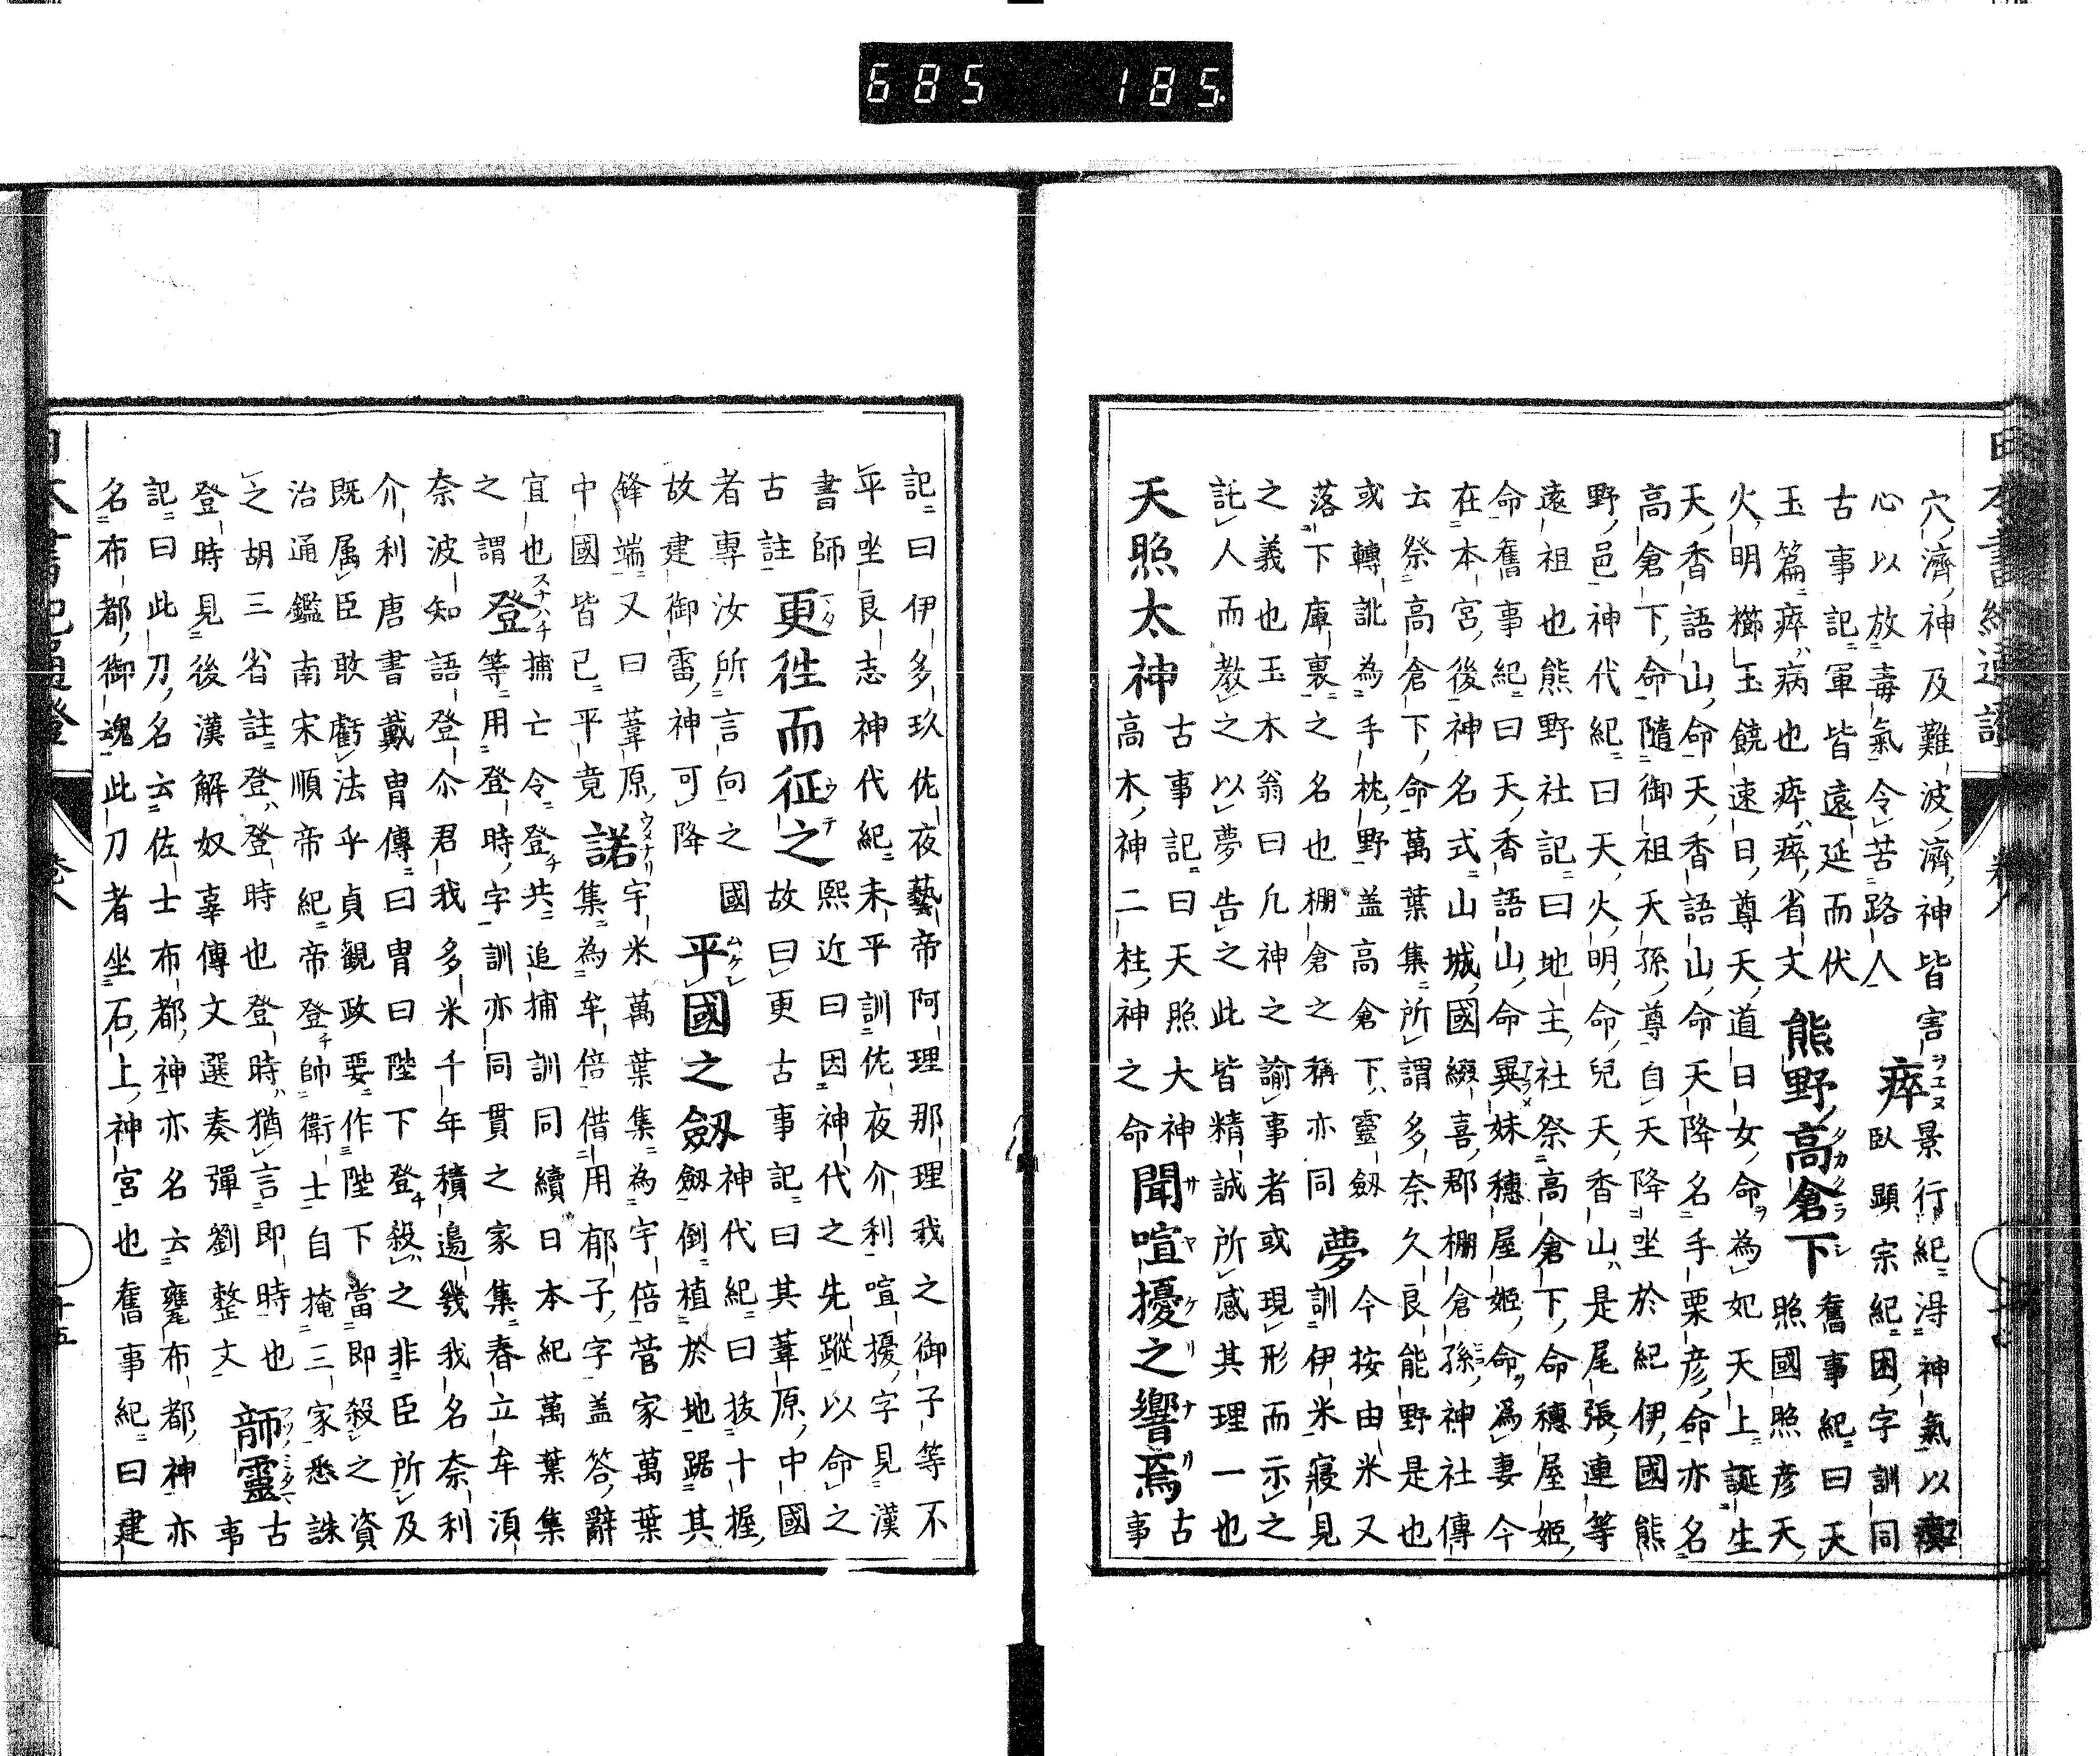 685 185.
穴濟神及難波濟神皆害景行紀得神氣以
心以放毒氣令苦路人瘁臥顕宗紀困字訓同
古事記軍皆遠延而伏
玉篇瘁病也瘁瘁省文熊野高倉下舊事紀曰天照國照彦天
火明櫛玉饒速日尊天道日女命為妃天上誕生
天香語山命天香語山命天降名手栗彦命亦名
高倉下命隨御祖天孫尊自天降坐於紀伊國熊
野邑神代紀曰天火明命兒天香山是尾張連等
遠祖也熊野社記曰地主社祭高倉下命穂屋姫
命舊事紀曰天香語山命異妹穂屋姫命為妻今
在本宮後神名式山城國綴喜郡棚倉孫神社傳
云祭高倉下命萬葉集所謂多奈久良能野是也
或轉訛為手枕野蓋高倉下靈劔今按由米又
落下庫裏之名也棚倉之稱亦同夢訓伊米寢見
之義也玉木翁曰凡神之諭事者或現形而示之
託人而教之以夢告之此皆精誠所感其理一也
天照太神古事記曰天照大神高木神二柱神之命聞喧擾之響焉古事
記曰伊多玖佐夜藝帝阿理那理我之御子等不
平坐良志神代紀未平訓佐夜介利喧擾字見漢
書師古註更往而征之熙近曰因神代之先蹤以命之故曰更古事記曰其葦原中國
者專汝所言向之國
故建御雷神可降平國之劔神代紀曰拔十握劔倒植於地踞其
鋒端又曰葦原中國皆已平竟諾宇米萬葉集為宇倍菅家萬葉集為牟倍借用郁子字蓋答辭
宜也捕亡令登共追捕訓同續日本紀萬葉集
之謂登等用登時字訓亦同貫之家集春立牟湏
奈波知語登尒君我多米千年積邉幾我名奈利
介利唐書戴冑傳曰冑曰陛下登殺之非臣所及
既属臣敢虧法乎貞観政要作陛下當即殺之資
治通鑑南宋順帝紀帝登帥衛士自掩三家悉誅
之胡三省註登登時也登時猶言即時也
登時見後漢解奴辜傳文選奏彈劉整文韴靈古事
記曰此刀名云佐士布都神亦名云甕布都神亦
名布都御魂此刀者坐石上神宮也舊事紀曰建